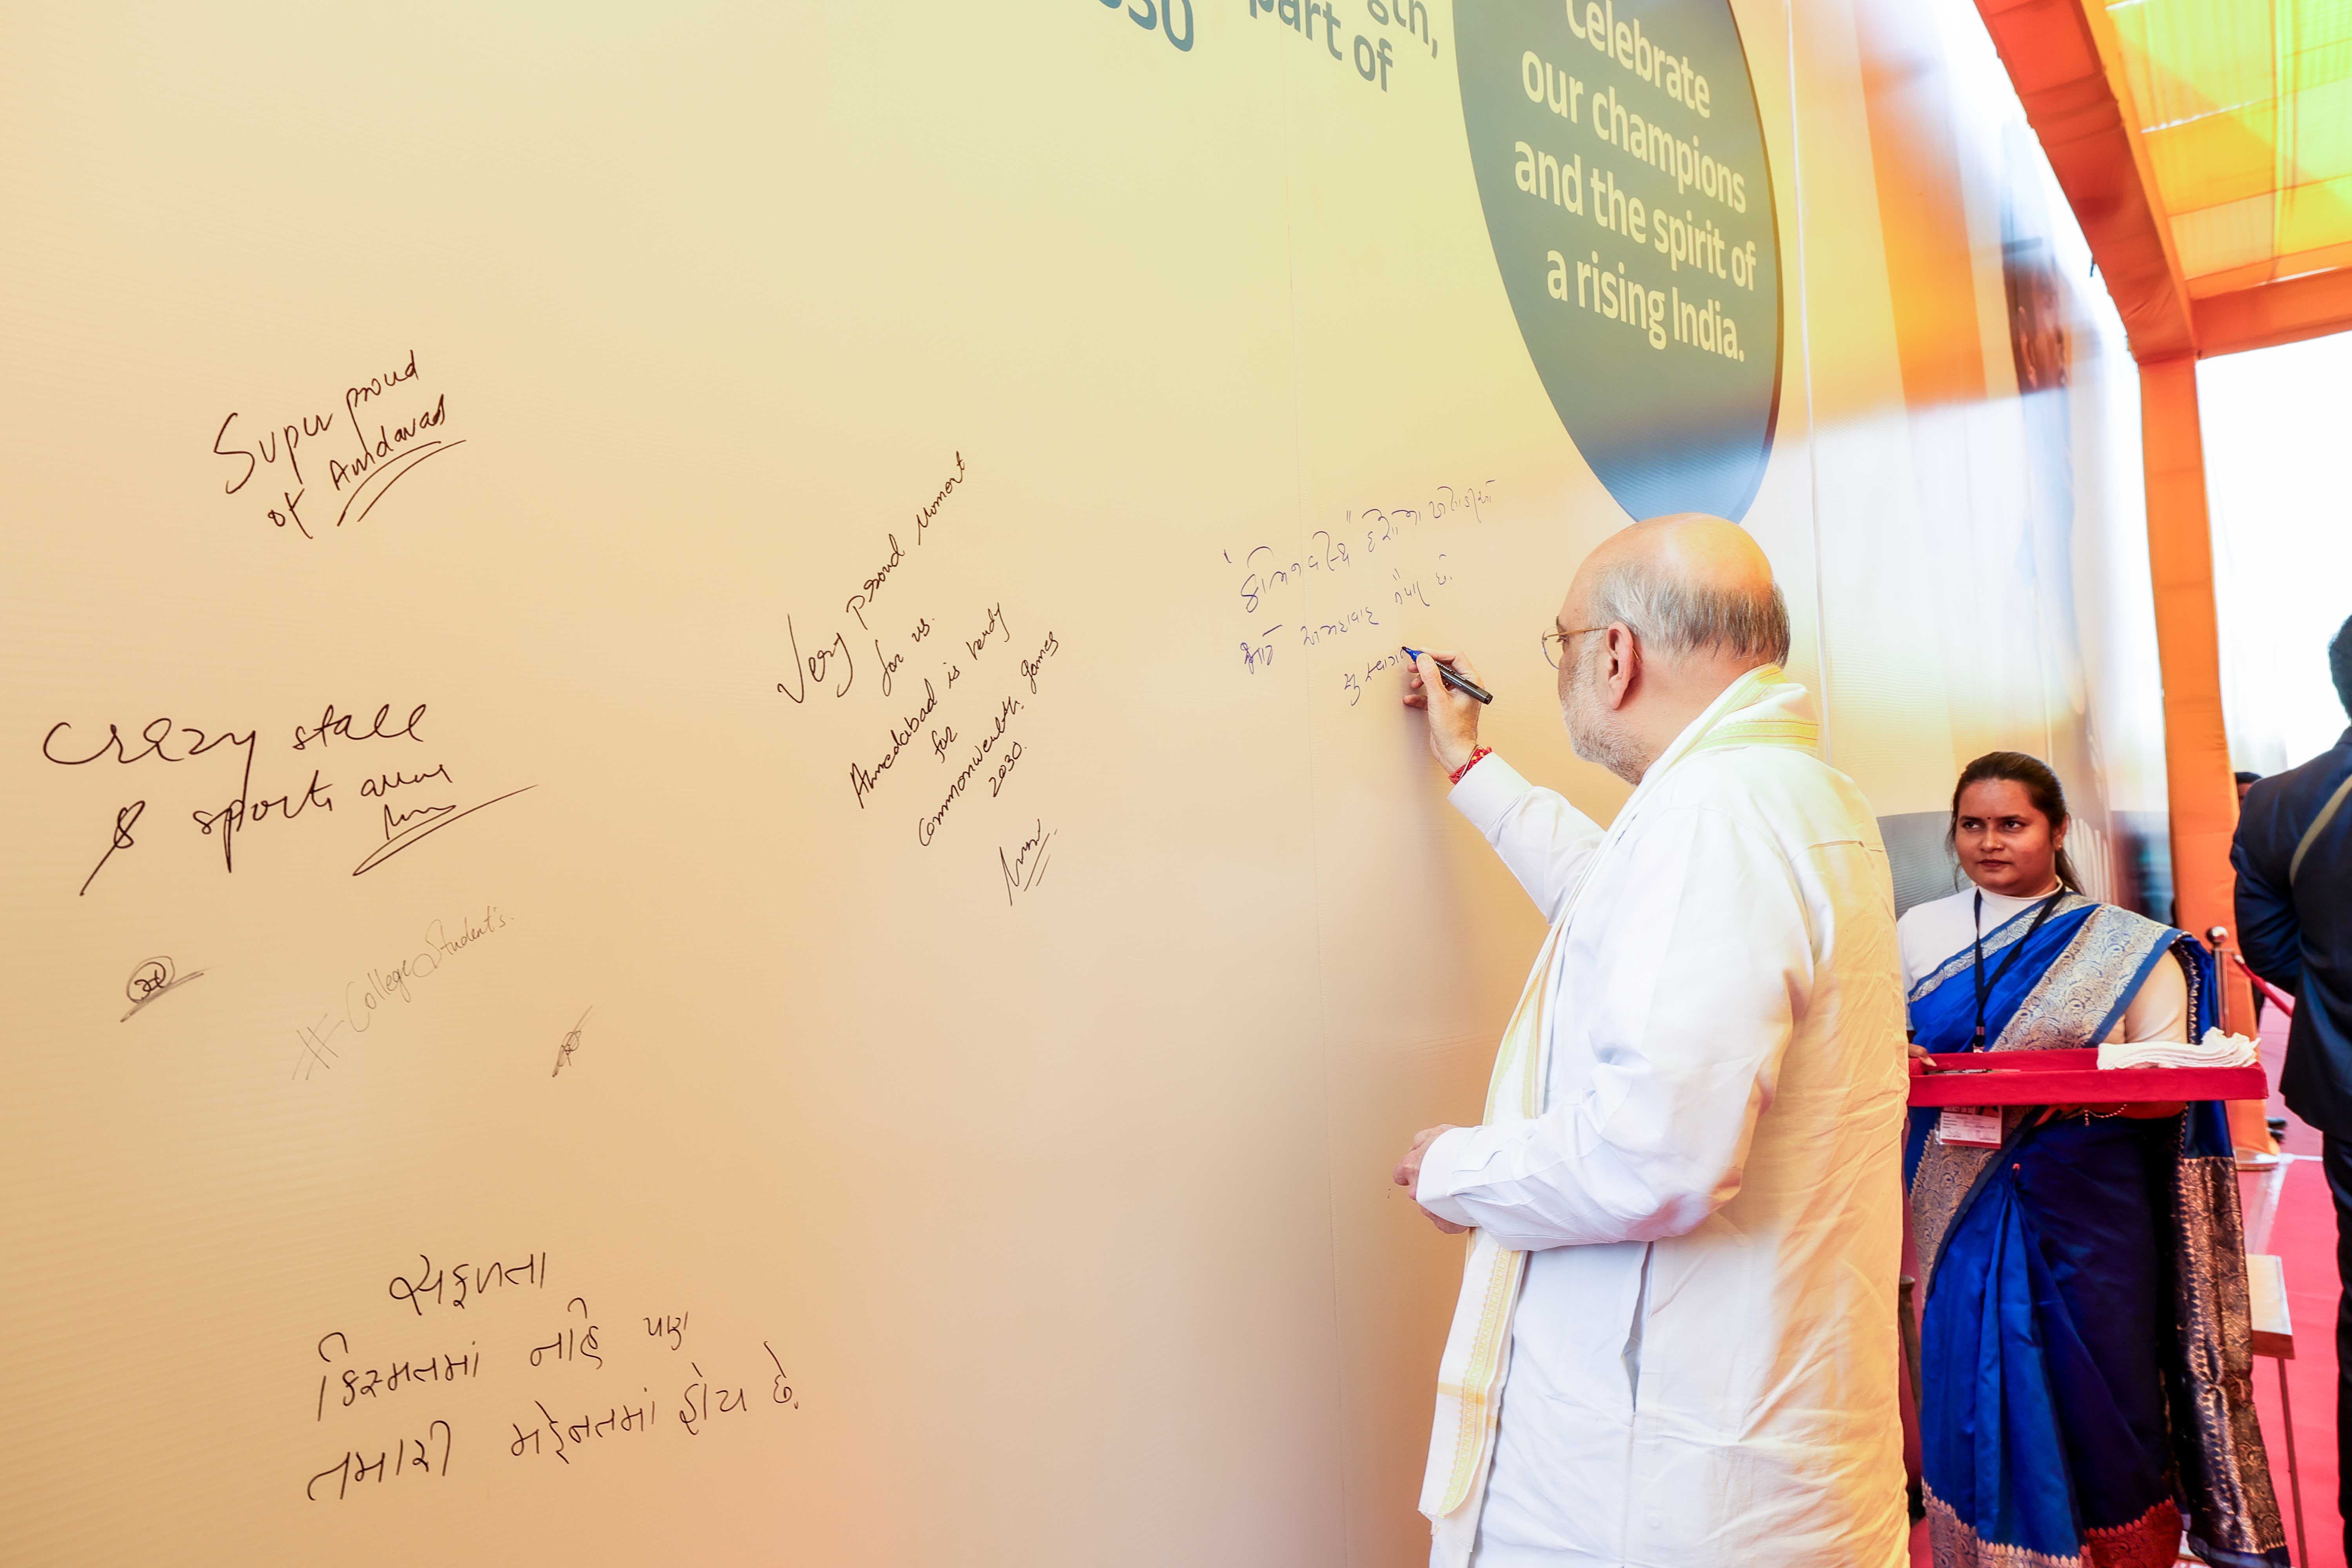 030
gth,
part of
Celebrate
our champions
and the spirit of
a rising India.
Super proud
of Amdavad
Very proud Moment
for us.
Ahmedabad is ready
for
Commonwealth games
2030.
"કોમનવેલ્થ"
માટે અમદાવાદ તૈયાર છે.
Crazy stall
& sports
#CollegeStudent's.
સફળતા
કિસ્મતમાં નહિ પણ
તમારી મહેનતમાં હોય છે.